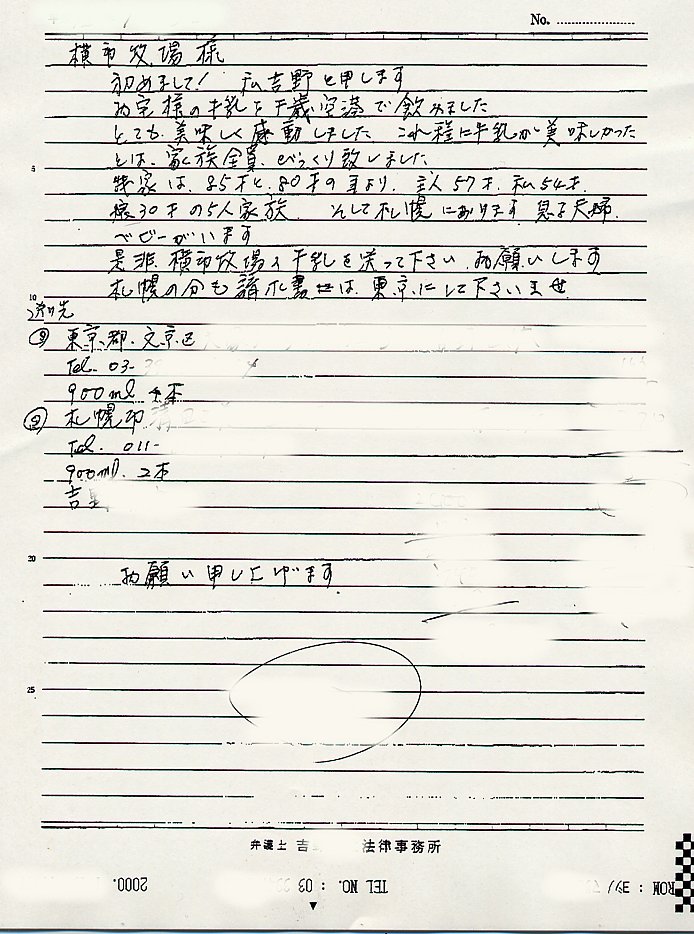 No.
横市牧場様
初めまして! 私吉野と申します
お宅様の牛乳を千歳空港で飲みました
とても美味しく感動しました これ程に牛乳が美味しかった
とは、家族全員、びっくり致しました
我家は、85才と、80才の 主人57才、私54才、
嫁30才の5人家族、そして札幌におります息子夫婦、
ベビーがいます
是非、横市牧場の牛乳を送って下さい、お願いします
札幌の分も請求書は、東京にして下さいませ
送り先
① 東京都、文京区
Tel. 03-
900ml 本
② 札幌市
Tel. 011-
900ml. 2本
吉
お願い申し上げます
5
10
20
25
弁護士 吉 法律事務所
2000.
TEL NO. : 03
ROM :